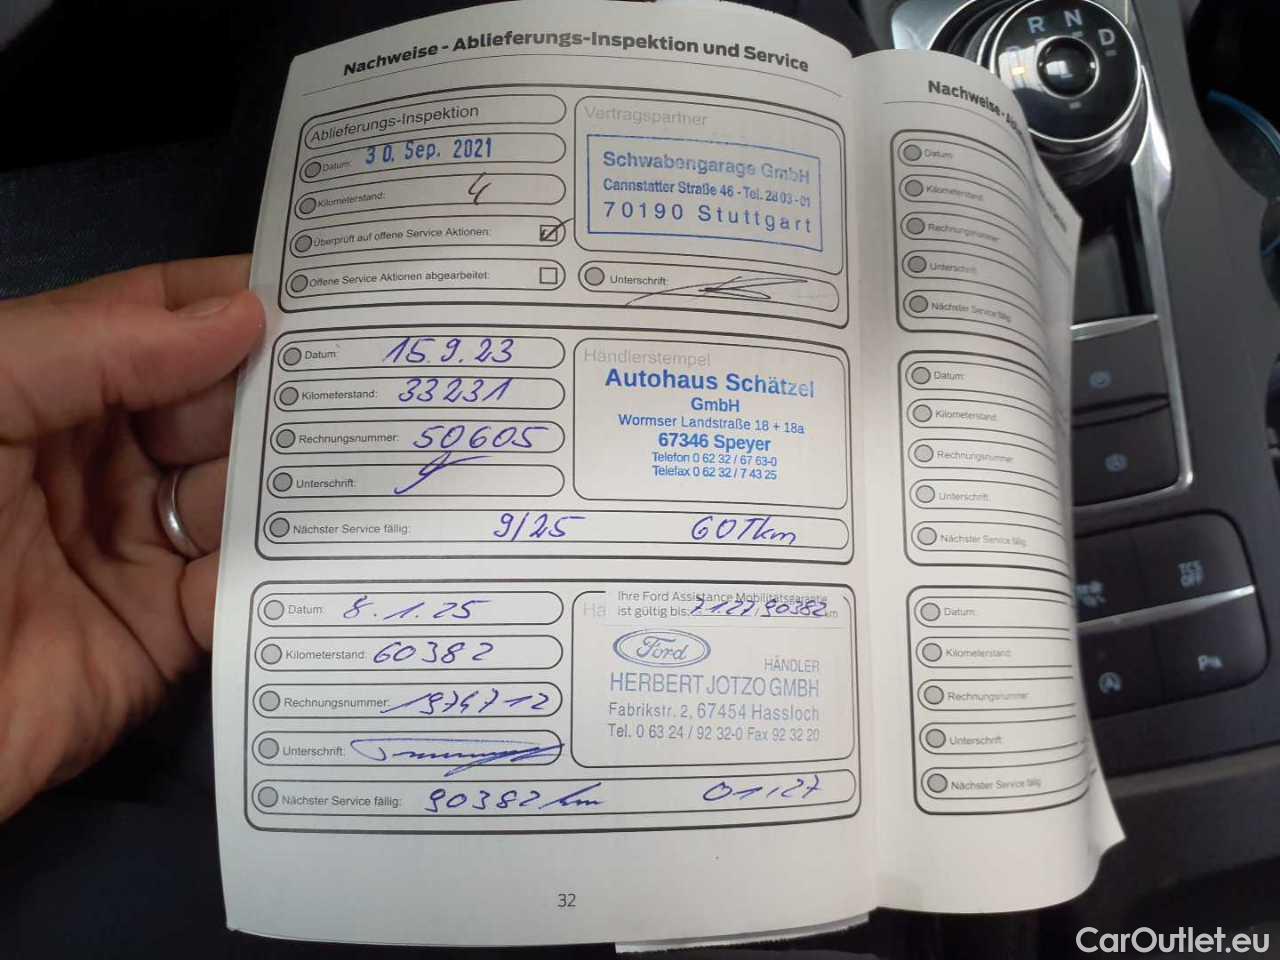 Nachweise - Ablieferungs-Inspektion und Service
Ablieferungs-Inspektion
Datum: 30. Sep. 2021
Kilometerstand: 4
Überprüft auf offene Service Aktionen:
Offene Service Aktionen abgearbeitet:
Vertragspartner
Schwabengarage GmbH
Cannstatter Straße 46 - Tel. 28 03 - 01
70190 Stuttgart
Unterschrift:
Datum: 15.9.23
Kilometerstand: 33231
Rechnungsnummer: 50605
Unterschrift:
Händlerstempel
Autohaus Schätzel
GmbH
Wormser Landstraße 18 + 18a
67346 Speyer
Telefon 0 62 32 / 67 63-0
Telefax 0 62 32 / 7 43 25
Nächster Service fällig: 9/25 60Tkm
Datum: 8.1.25
Kilometerstand: 60382
Rechnungsnummer: 1974712
Unterschrift:
Ihre Ford Assistance Mobilitätsgarantie
ist gültig bis: 7.1.27, 90382 km
Ford
HÄNDLER
HERBERT JOTZO GMBH
Fabrikstr. 2, 67454 Hassloch
Tel. 0 63 24 / 92 32-0 Fax 92 32 20
Nächster Service fällig: 90382 km 01.27
32
Nachweise -
Datum:
Kilometerstand:
Rechnungsnummer:
Unterschrift:
Nächster Service fällig:
Datum:
Kilometerstand:
Rechnungsnummer
Unterschrift:
Nächster Service fällig:
Datum:
Kilometerstand:
Rechnungsnummer
Unterschrift:
Nächster Service fällig
R
N
D
L
TCS
OFF
A
P
CarOutlet.eu